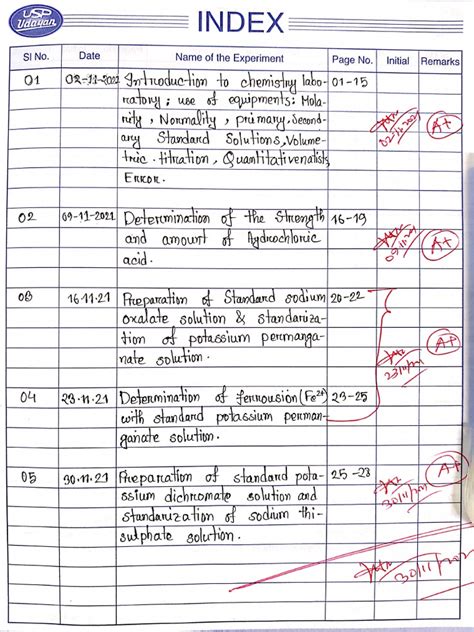 USP
Udayan
INDEX
Sl No. Date Name of the Experiment Page No. Initial Remarks
01 02-11-2021 Introduction to chemistry labo- 01-15
ratory; use of equipments; Mola-
rity, Normality, primary, Second-
ary Standard Solutions, Volume-
tric titration, Quantitative
Error.
02-11-2021 A+
02 09-11-2021 Determination of the Strength 16-19
and amount of Hydrochloric
acid.
09/11/2021 A+
03 16.11.21 Preparation of Standard sodium 20-22
oxalate solution & standariza-
tion of potassium permanga-
nate solution.
23/11/2021 A+
04 23.11.21 Determination of ferrousion (Fe²⁺) 23-25
with standard potassium perman-
ganate solution.
05 30.11.21 Preparation of standard pota- 25-28
ssium dichromate solution and
standarization of sodium thi-
sulphate solution.
30/11/2021 A+
30/11/202